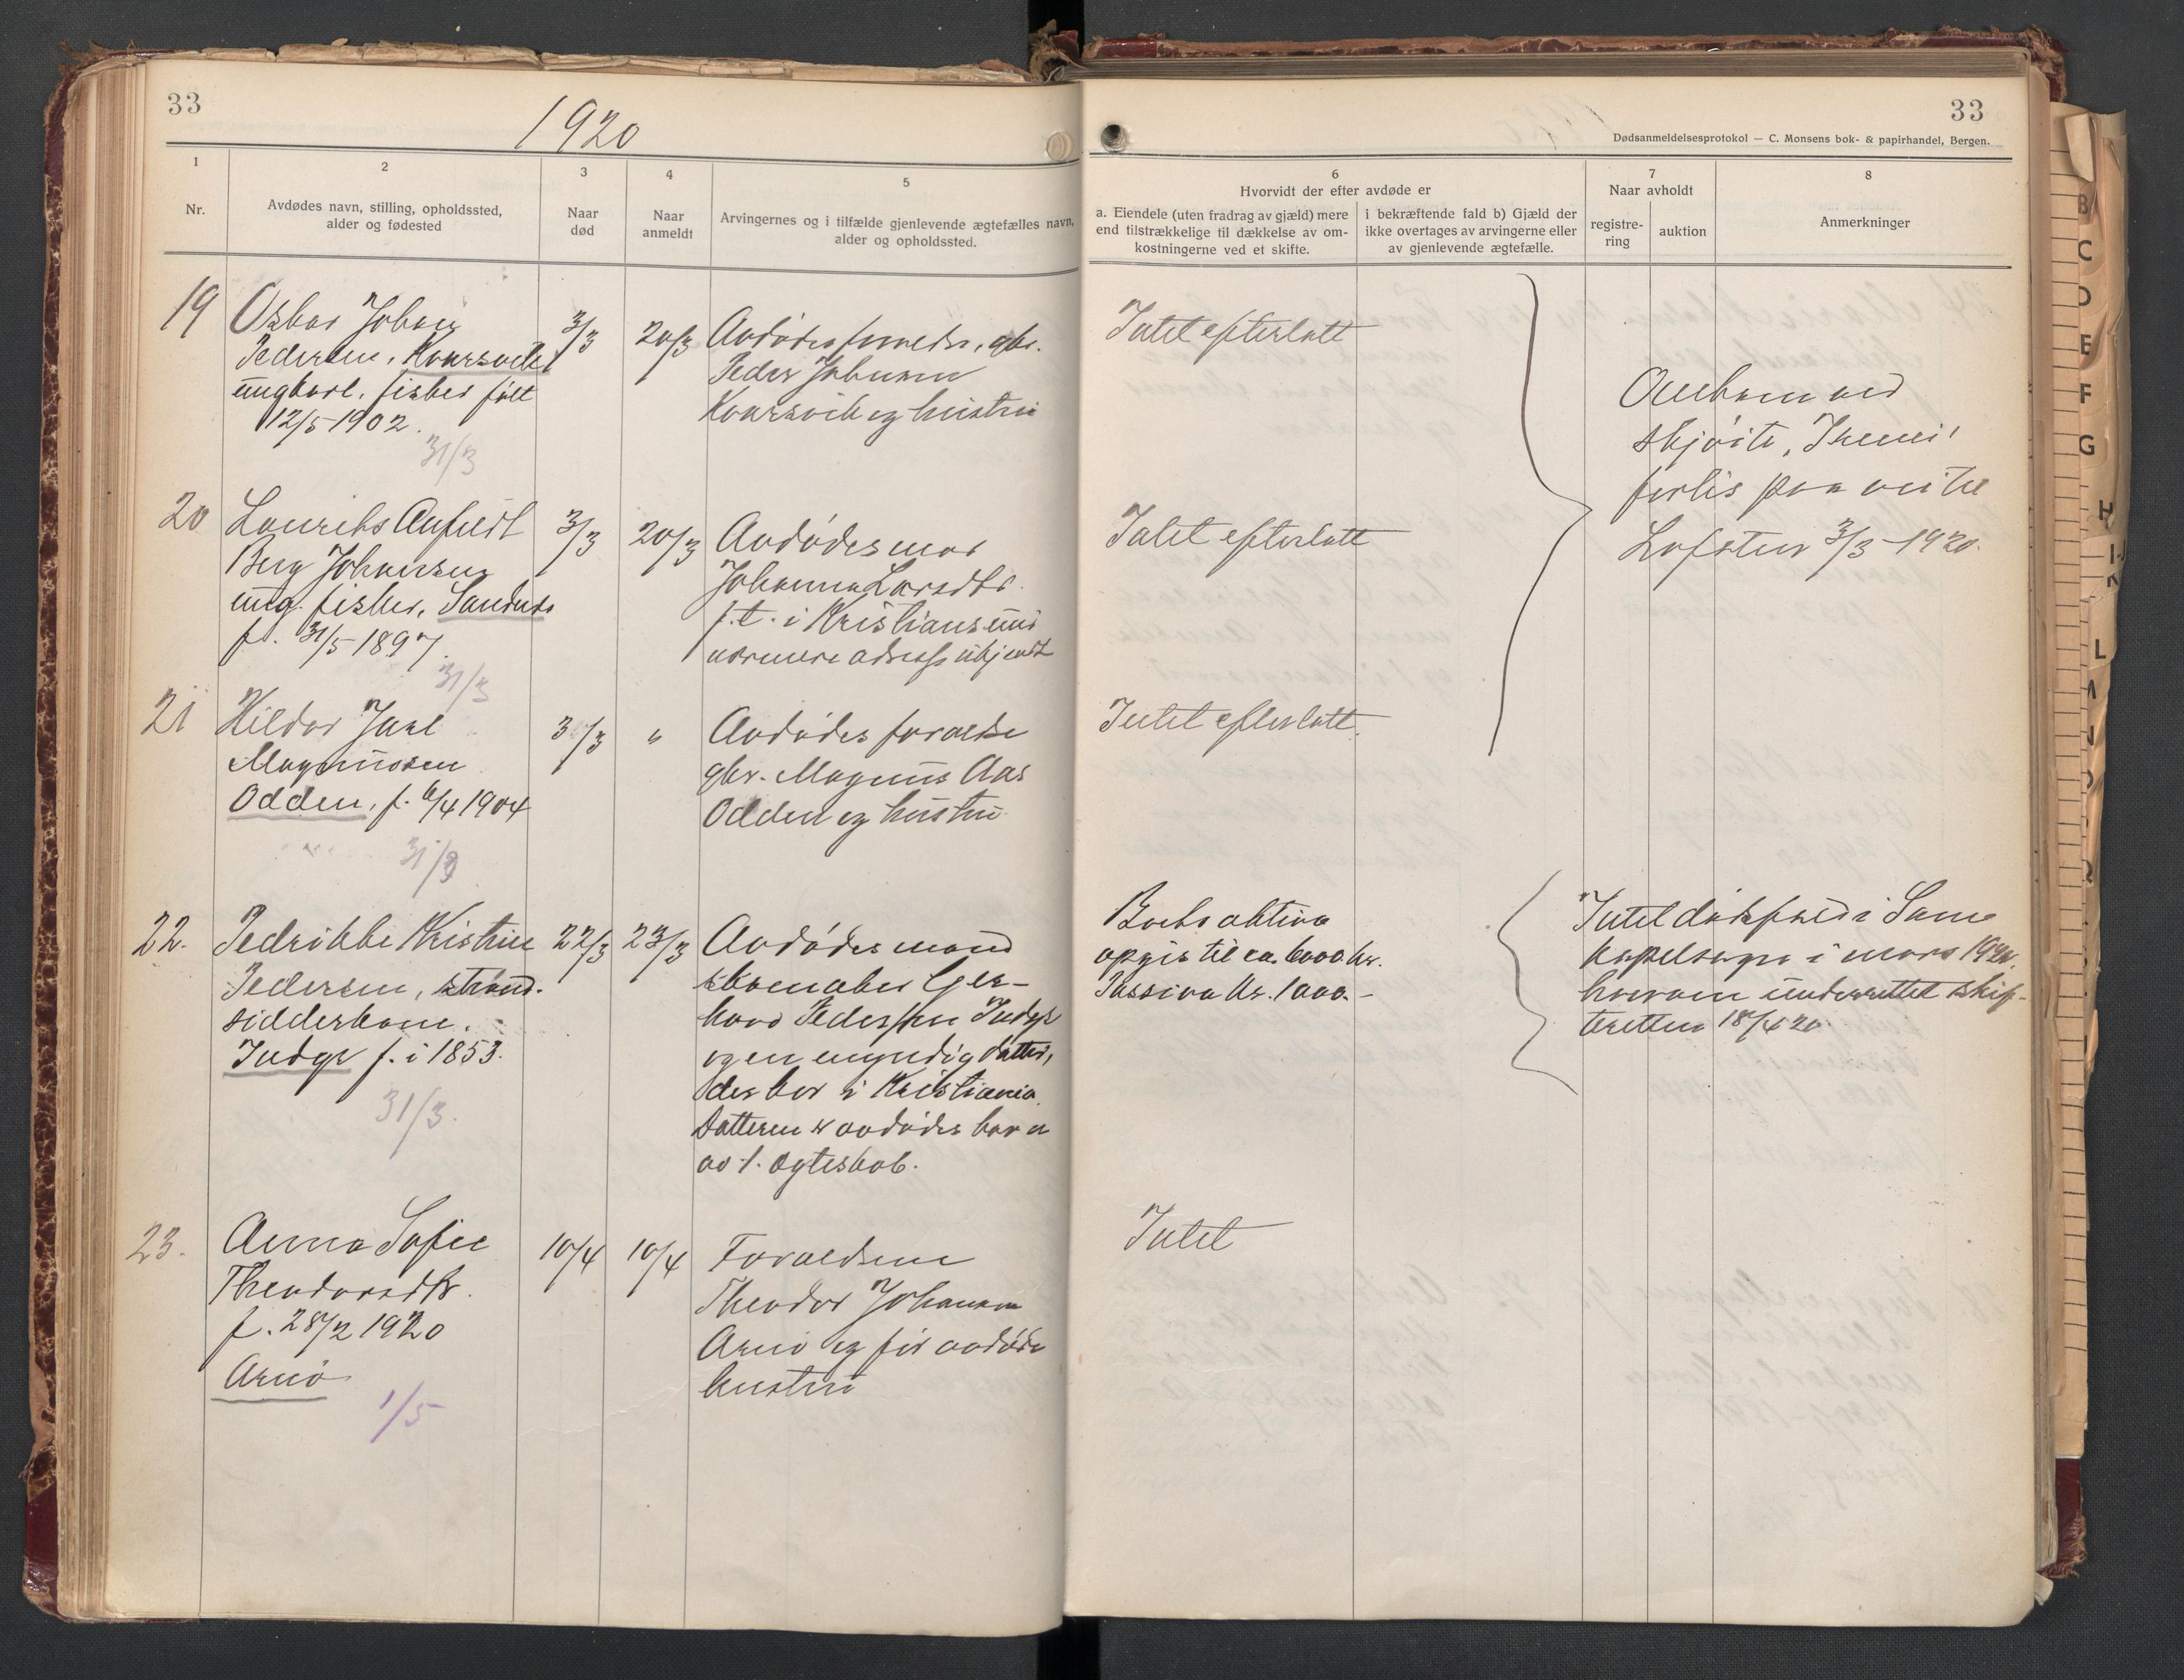 33
1920
1
2
3
4
5
Nr.
Avdødes navn, stilling, opholdssted,
alder og fødested
Naar
død
Naar
anmeldt
Arvingernes og i tilfælde gjenlevende ægtefælles navn,
alder og opholdssted.
19
Oskar Johan
Pedersen, Kvarsvik
ungkarl, fisker født
12/5 1902.
31/3
3/3
20/3
Avdødes forældre, gbr.
Peder Johansen
Kvarsvik og hustru
20
Laurits Anfeldt
Berg Johansen
ung. fisker, Sandnes
f. 31/5-1897.
31/3
3/3
20/3
Avdødes mor
Johanna Larsdtr.
f.t. i Kristianssund
nærmere adresse ukjendt
21
Hildor Jarl
Magnussen
Odden, f. 6/4 1904
31/3
3/3
"
Avdødes forældre
gbr. Magnus Aas
Odden og hustru
22.
Pedrikke Kristine
Pedersen, strand-
sidderkone.
Indgr f. i 1853.
31/3.
22/3
23/3
Avdødes mand
skomaker Ger-
hard Pedersen Indgr
og en myndig datter,
der bor i Kristiania.
Datteren er avdødes barn
av 1. ægteskab.
23.
Anna Sofie
Theodorsdtr.
f. 28/2 1920
Arnø
1/5
10/4
10/4
Forældrene
Theodor Johansen
Arnø og før avdøde
hustru
33
Dødsanmeldelsesprotokol — C. Monsens bok- & papirhandel, Bergen.
6
7
8
Hvorvidt der efter avdøde er
a. Eiendele (uten fradrag av gjæld) mere
end tilstrækkelige til dækkelse av om-
kostningerne ved et skifte.
i bekræftende fald b) Gjæld der
ikke overtages av arvingerne eller
av gjenlevende ægtefælle.
Naar avholdt
registre-
ring
auktion
Anmerkninger
Intet efterlatt
Intet efterlatt
Intet efterlatt.
Omkom ved
skjøite
forlis paa vei til
Lofoten 3/3-1920.
Boets aktiva
opgis til ca. 6000 kr.
Passiva kr. 1000.-
Intet dødsfald i Same
kapelsogn i mars 1920,
hvorom underrettet skif-
teretten 18/4 20.
Intet
B
C
D
E
F
G
H
L